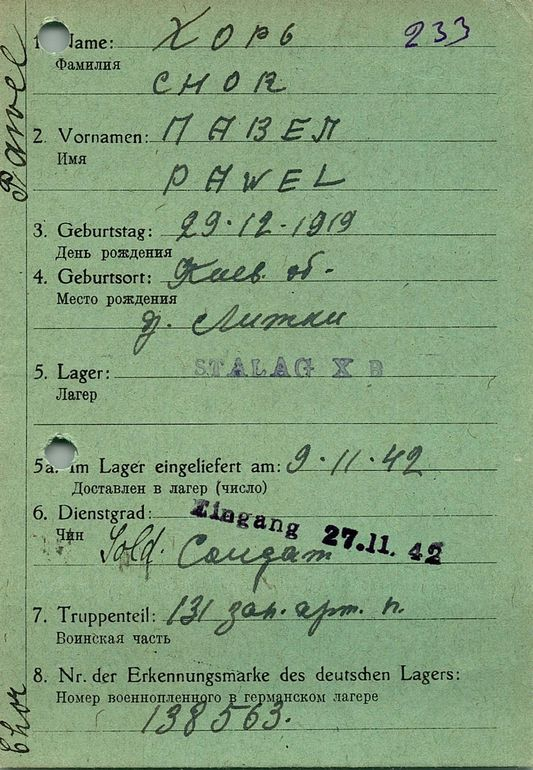 1. Name: Хорь 233
Фамилия
CHOR
2. Vornamen: ПАВЕЛ
Имя
PAWEL
3. Geburtstag: 29.12.1919
День рождения
4. Geburtsort: Киев. об.
Место рождения
д. Литки
5. Lager: STALAG X B
Лагер
5a. Im Lager eingeliefert am: 9.11.42
Доставлен в лагер (число)
6. Dienstgrad: Eingang 27.11.42
Чин Sold. Солдат
7. Truppenteil: 131 зап. арт. п.
Воинская часть
8. Nr. der Erkennungsmarke des deutschen Lagers:
Номер военнопленного в германском лагере
138563.
Pawel
Chor